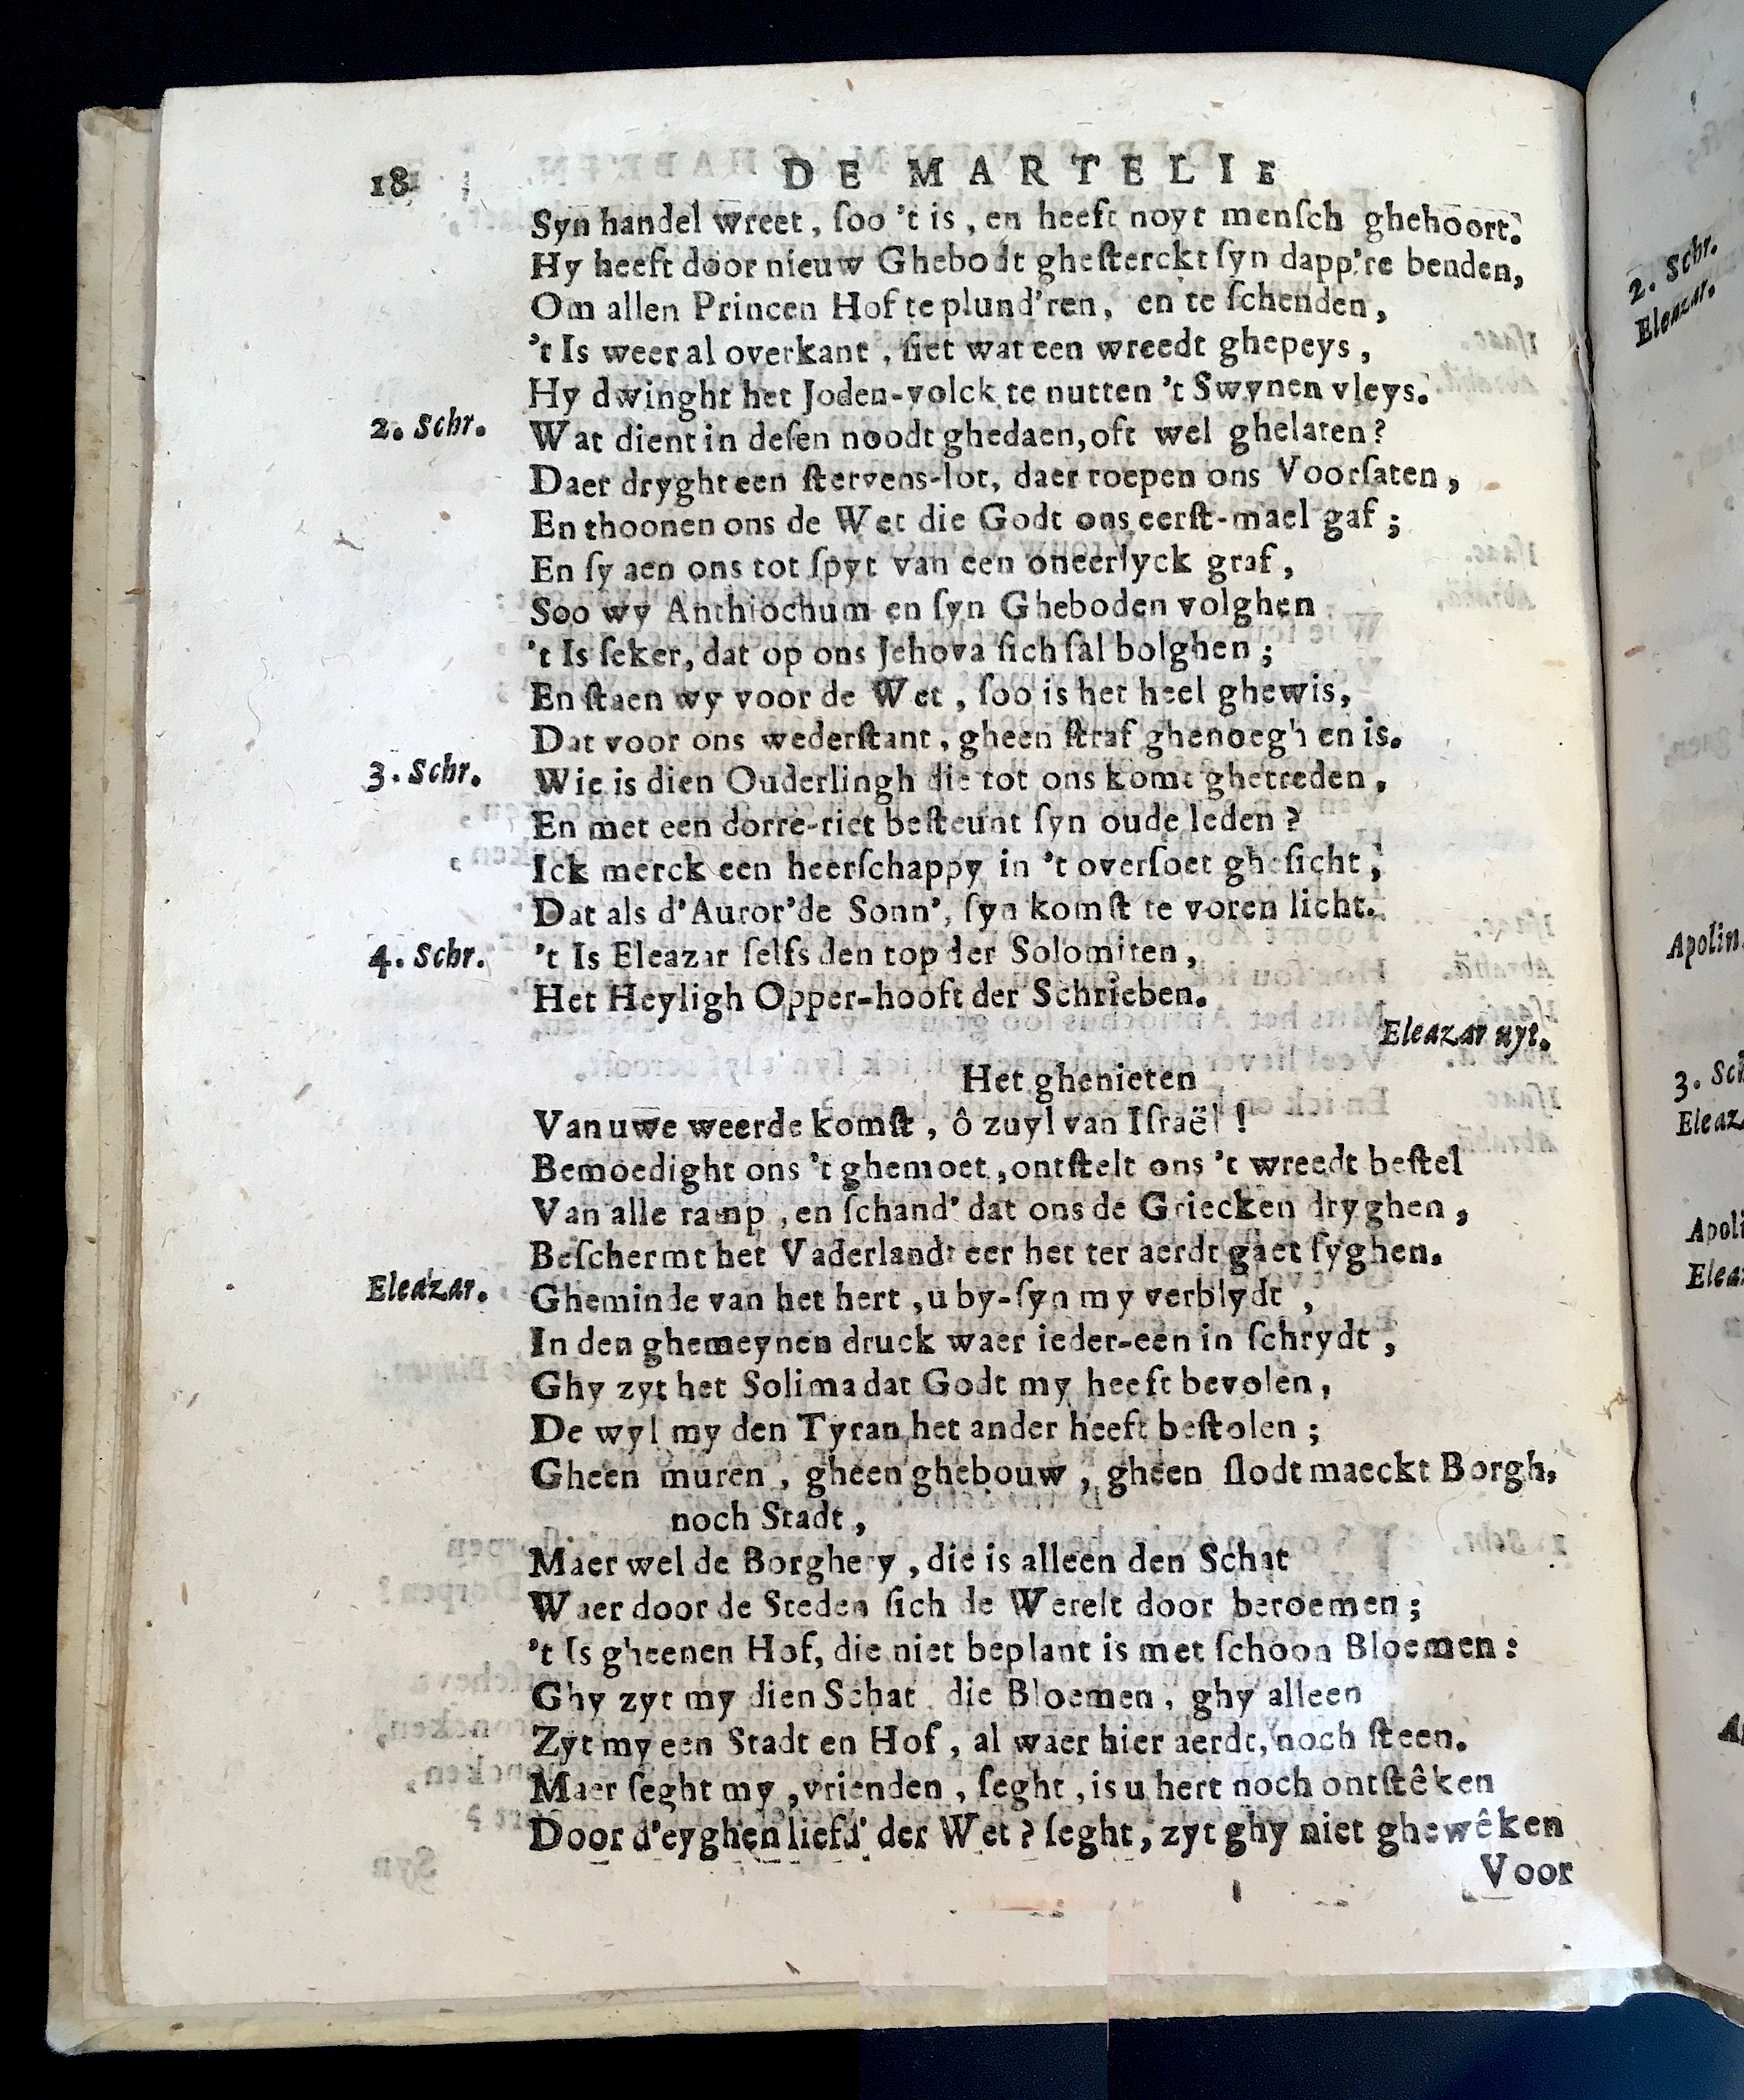 18 DE MARTELIE
Syn handel wreet, ſoo 't is, en heeft noyt menſch ghehoort.
Hy heeft door nieuw Ghebodt gheſterckt ſyn dapp're benden,
Om allen Princen Hof te plund'ren, en te ſchenden,
't Is weer al overkant, ſiet wat een wreedt ghepeys,
Hy dwinght het Joden-volck te nutten 't Swynen vleys.
2. Schr. Wat dient in deſen noodt ghedaen, oft wel ghelaten?
Daer dryght een ſtervens-lot, daer roepen ons Voorſaten,
En thoonen ons de Wet die Godt ons eerſt-mael gaf;
En ſy aen ons tot ſpyt van een oneerlyck graf,
Soo wy Anthiochum en ſyn Gheboden volghen
't Is ſeker, dat op ons Jehova ſich ſal bolghen;
En ſtaen wy voor de Wet, ſoo is het heel ghewis,
Dat voor ons wederſtant, gheen ſtraf ghenoegh en is.
3. Schr. Wie is dien Ouderlingh die tot ons komt ghetreden,
En met een dorre-riet beſteunt ſyn oude leden?
Ick merck een heerſchappy in 't overſoet gheſicht,
Dat als d'Auror'de Sonn', ſyn komſt te voren licht.
4. Schr. 't Is Eleazar ſelfs den top der Solomiten,
Het Heyligh Opper-hooft der Schrieben.
Eleazar uyt.
Het ghenieten
Van uwe weerde komſt, ô zuyl van Iſraël!
Bemoedight ons 't ghemoet, ontſtelt ons 't wreedt beſtel
Van alle ramp, en ſchand' dat ons de Griecken dryghen,
Beſchermt het Vaderlandt eer het ter aerdt gaet ſyghen.
Eleazar. Gheminde van het hert, u by-ſyn my verblydt,
In den ghemeynen druck waer ieder-een in ſchrydt,
Ghy zyt het Solima dat Godt my heeft bevolen,
De wyl my den Tyran het ander heeft beſtolen;
Gheen muren, gheen ghebouw, gheen ſlodt maeckt Borgh,
noch Stadt,
Maer wel de Borghery, die is alleen den Schat
Waer door de Steden ſich de Werelt door beroemen;
't Is gheenen Hof, die niet beplant is met ſchoon Bloemen:
Ghy zyt my dien Schat die Bloemen, ghy alleen
Zyt my een Stadt en Hof, al waer hier aerdt, noch ſteen.
Maer ſeght my, vrienden, ſeght, is u hert noch ontſtêken
Door d'eyghen liefd' der Wet? ſeght, zyt ghy niet ghewêken
Voor
2. Schr.
Eleazar.
Apolin.
3. Sch
Eleaz
Apoli
Elea